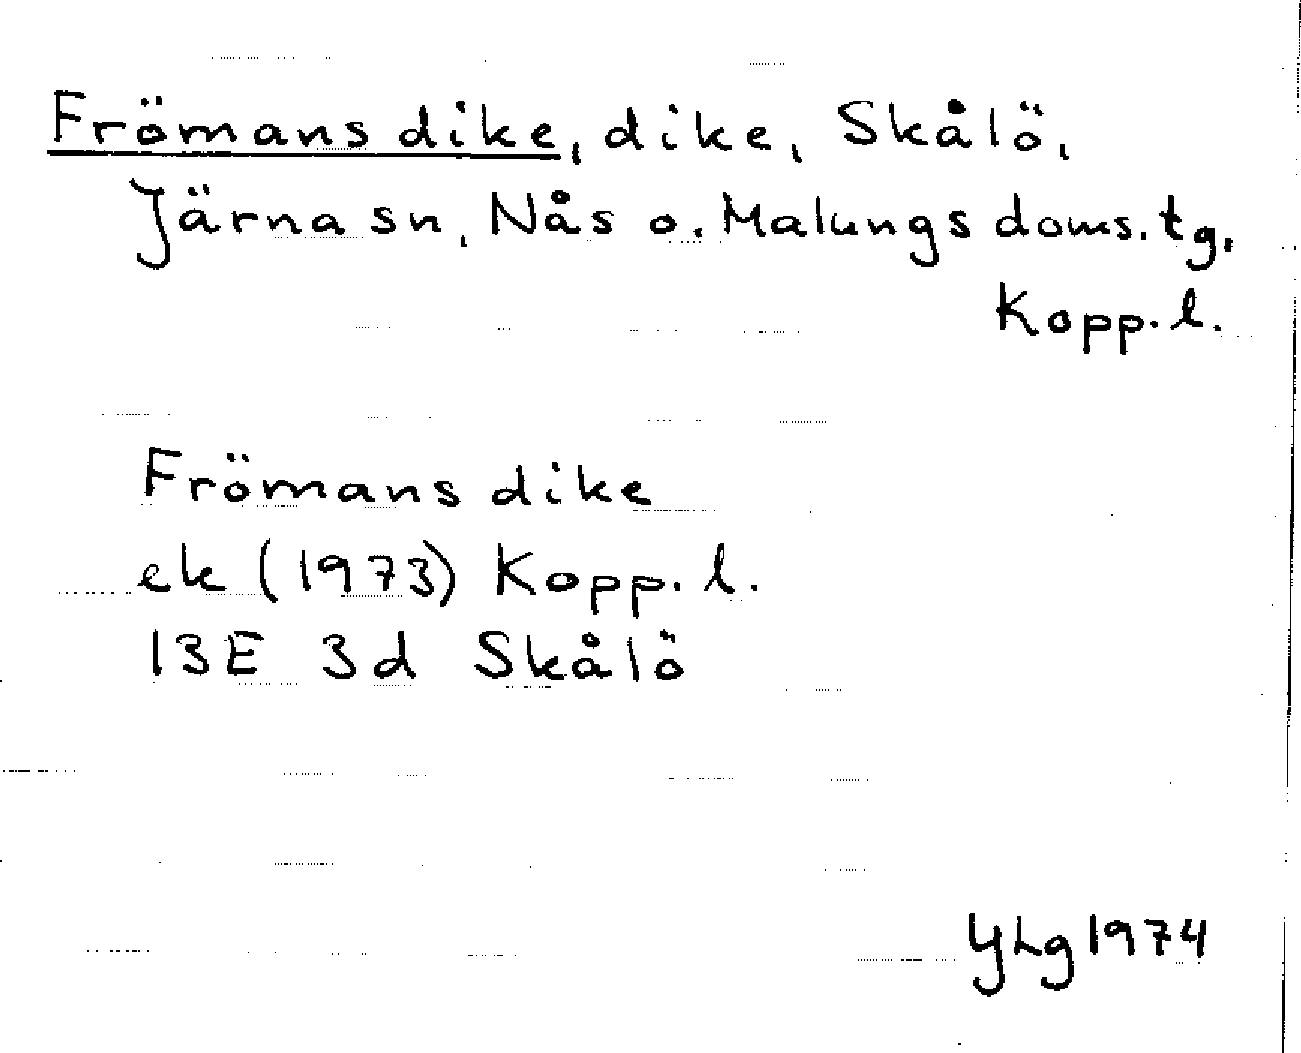 Frömans dike, dike, Skålö,
Järna sn, Nås o. Malungs doms.tg,
Kopp.l.
Frömans dike
ek (1973) Kopp.l.
13E 3d Skålö
YLg 1974